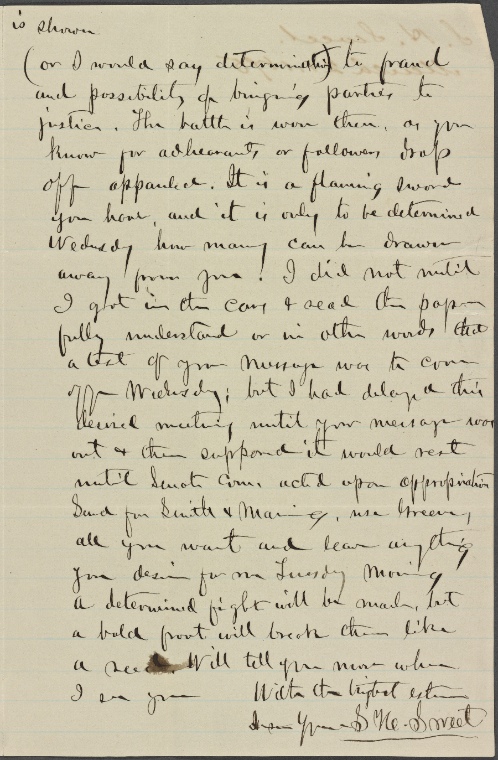 is shown
(or I would say determination) to fraud
and possibility of bringing parties to
justice. The battle is won then, as you
know for adhearants or followers drop
off appauled. It is a flaming sword
you have, and it is only to be determined
Wednesdy how many can be drawn
away from you! I did not until
I got in the cars & read the paper
fully understand or in other words that
a test of your message was to come
off Wednesday; but I had delayed this
desired meeting until your message was
out & then supposed it would rest
until Senate Com. acted upon appropriation
Send for Smith & Maning, use Greene,
all you want and leave anything
you desire for me Tuesday Morning
A determined fight will be made, but
a bold front will break them like
a reed. Will tell you more when
I see you With the highest esteem
I am Yours S. H. Sweet